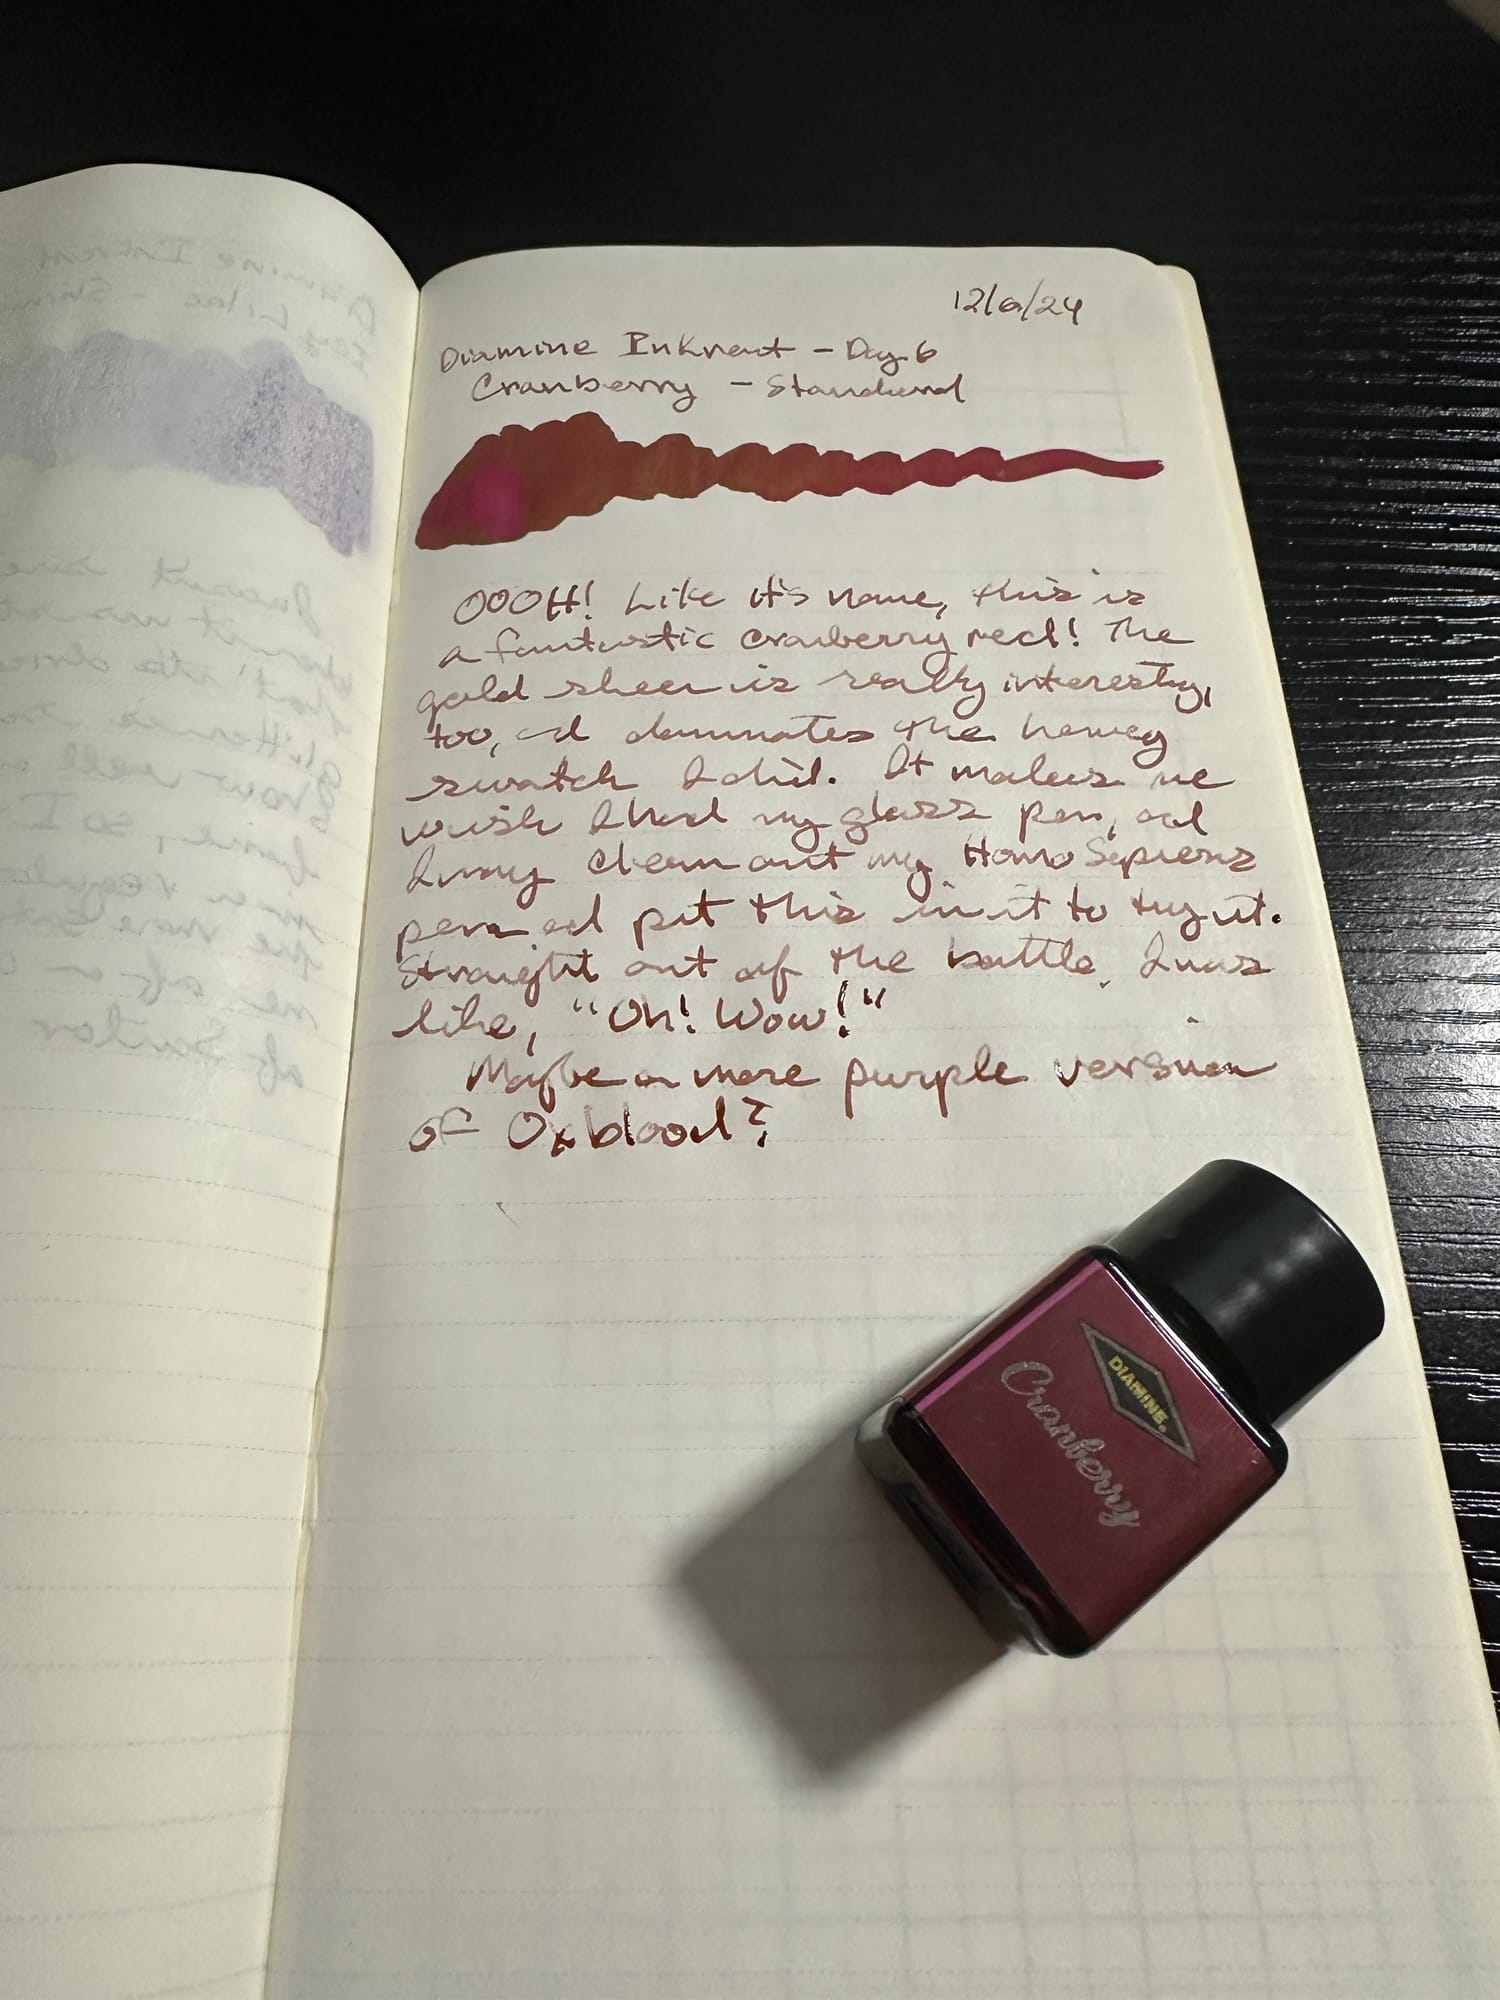 12/6/24
Diamine Inkvent - Day 6
Cranberry - Standard
OOOH! Like it's name, this is
a fantastic cranberry red! The
gold sheen is really interesting,
too, and dominates the heavy
swatch I did. It makes me
wish I had my glass pen, and
I may clean out my Homo Sapiens
pen and put this in it to try it.
Straight out of the bottle, I was
like, "Oh! Wow!"
Maybe a more purple version
of Oxblood?
DIAMINE
Cranberry